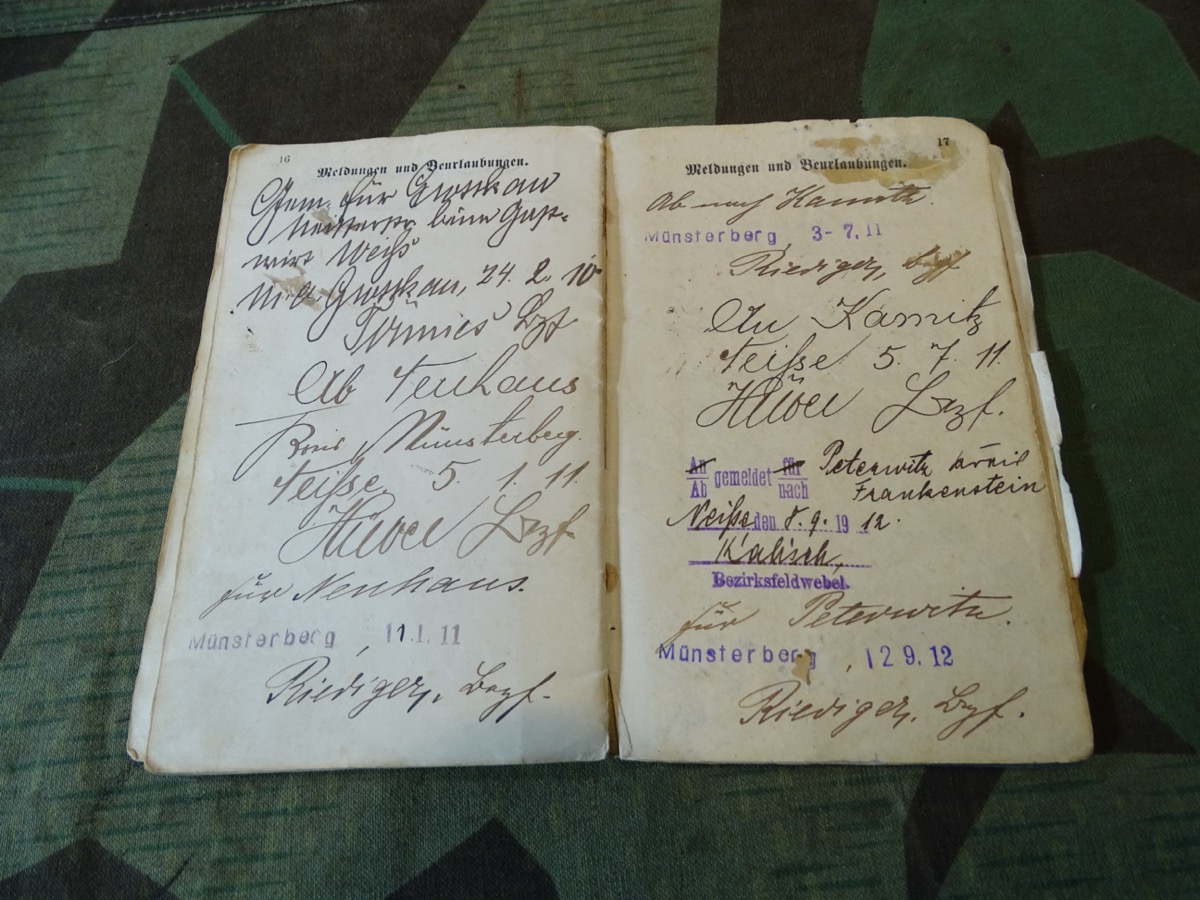 16
Meldungen und Beurlaubungen.
Gem. für Grottkau
beim Gast-
wirt Weiß
M. A. Grottkau, 24. 2. 10
Tönnies Bzf.
Ab Neuhaus
Kreis Münsterberg.
Neiße 5. 1. 11.
Bzf.
für Neuhaus.
Münsterberg, 11.1. 11
Riediger, Bezf.
17
Meldungen und Beurlaubungen.
Ab nach Kamitz.
Münsterberg, 3-7. 11
Riediger, Bzf
An Kamitz
Neiße 5. 7. 11.
Bezf.
An
Ab gemeldet für
nach Peterwitz Kreis
Frankenstein
Neiße den 8. 9. 19 12.
Kalisch,
Bezirksfeldwebel.
für Peterwitz.
Münsterberg, 12 9. 12
Riediger, Bzf.